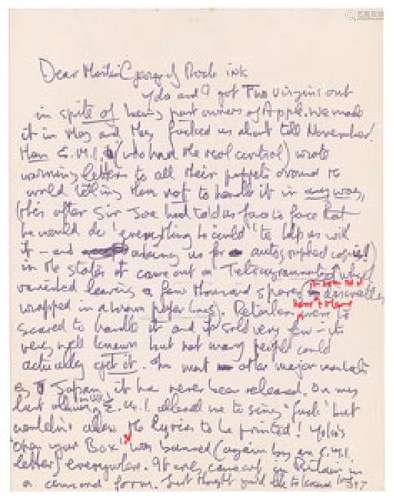 Dear Martin (George) of Rock ink
Yoko and I got Two Virgins out
in spite of being part owners of Apple. We made
it in May and they fucked us about till November.
Then E.M.I. (who had the real control) wrote
warning letters to all their puppets around the
world telling them not to handle it in any way.
(this after Sir Joe had told us face to face that
he would do 'everything he could' to help us with
it – and asking us for autographed copies!)
in the states it came out on Tetragrammaton which
vanished leaving a few thousand
wrapped in a brown paper bag). Retailers were
scared to handle it and it sold very few – it's
very well known but not many people could
actually get it. In most other major markets
e.g Japan it has never been released. On my
last album in U.K. E.M.I. allowed me to sing 'fuck' but
wouldn't allow the lyrics to be printed! Yoko's
'Open your Box' was banned (again by an E.M.I.
letter) everywhere. It eventually came out in Britain in
a censored form. Just thought you'd like to know